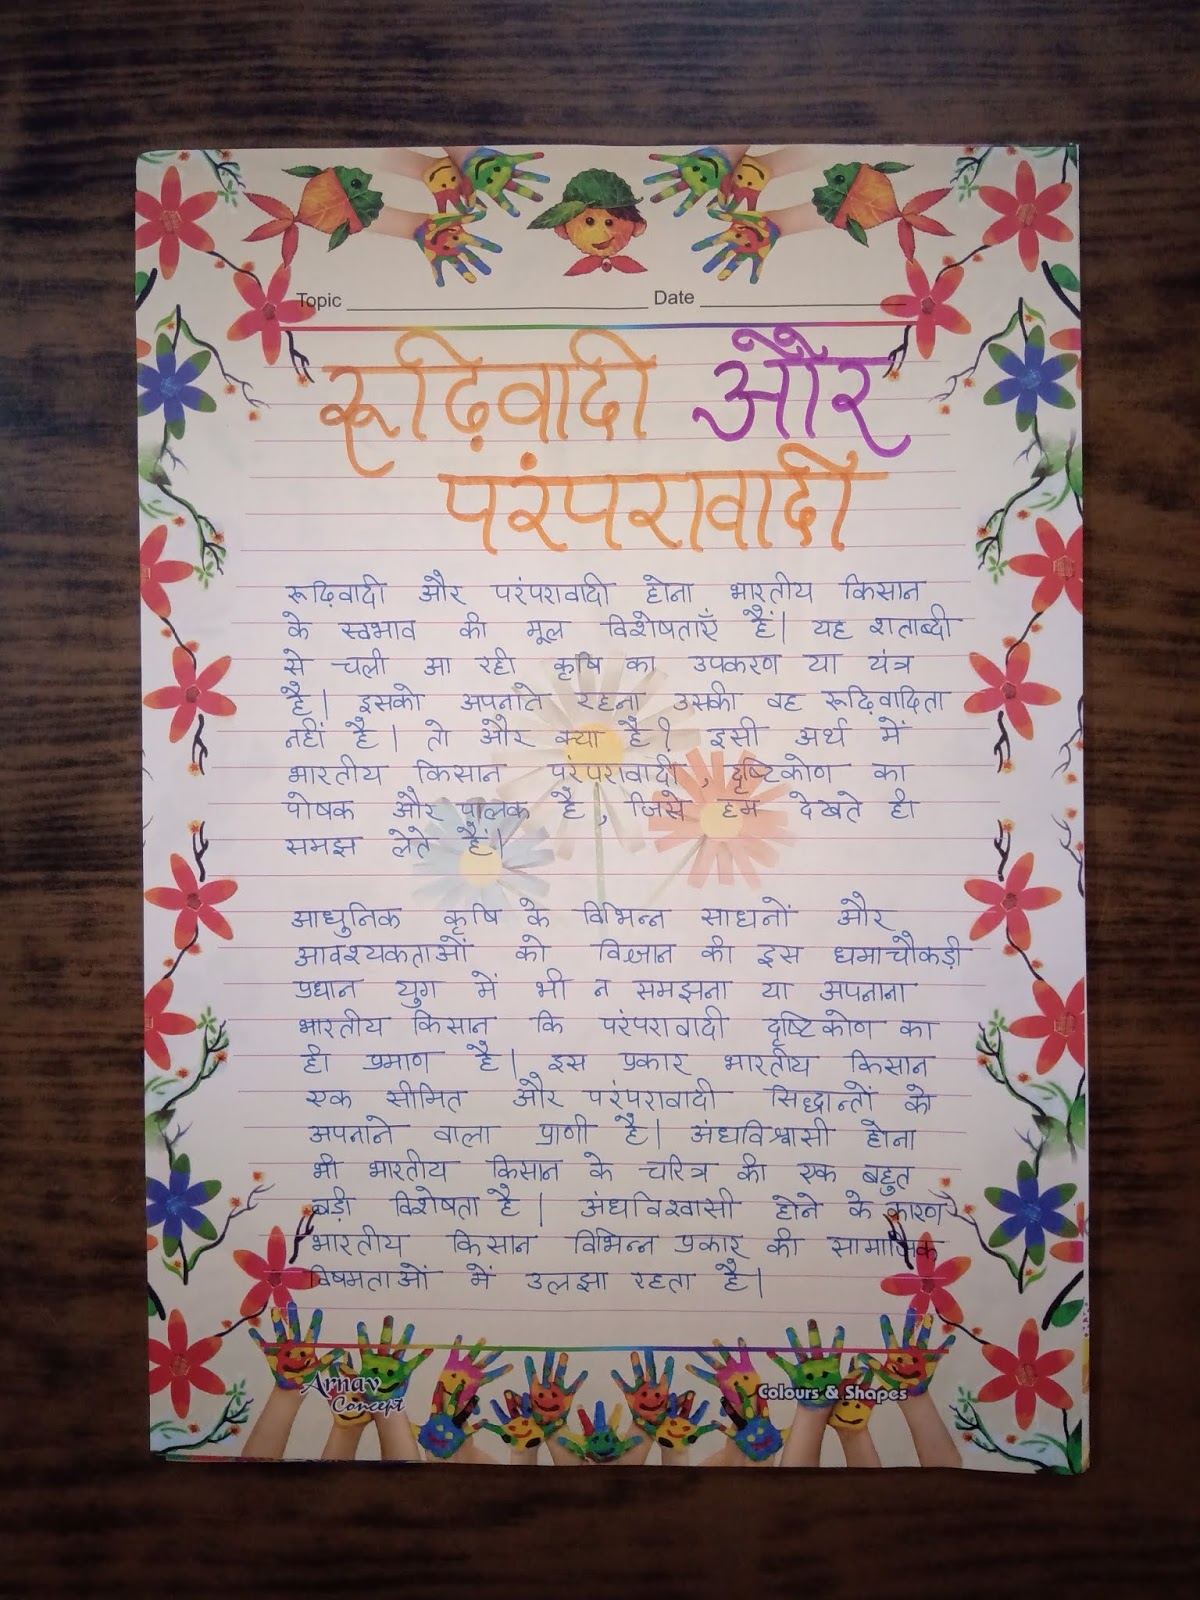 Topic
Date
रूढ़िवादी और
परंपरावादी
रूढ़िवादी और परंपरावादी होना भारतीय किसान
के स्वभाव की मूल विशेषताएँ हैं| यह शताब्दी
से चली आ रही कृषि का उपकरण या यंत्र
है| इसको अपनाते रहना उसकी वह रूढ़िवादिता
नहीं है| तो और क्या है? इसी अर्थ में
भारतीय किसान परंपरावादी, दृष्टिकोण का
पोषक और पालक है, जिसे हम देखते ही
समझ लेते हैं|
आधुनिक कृषि के विभिन्न साधनों और
आवश्यकताओं को विज्ञान की इस धमाचौकड़ी
प्रधान युग में भी न समझना या अपनाना
भारतीय किसान कि परंपरावादी दृष्टिकोण का
ही प्रमाण है| इस प्रकार भारतीय किसान
एक सीमित और परंपरावादी सिद्धान्तों के
अपनाने वाला प्राणी है| अंधविश्वासी होना
भी भारतीय किसान के चरित्र की एक बहुत
बड़ी विशेषता है| अंधविश्वासी होने के कारण
भारतीय किसान विभिन्न प्रकार की सामाजिक
विषमताओं में उलझा रहता है|
Arnav
Concept
Colours & Shapes